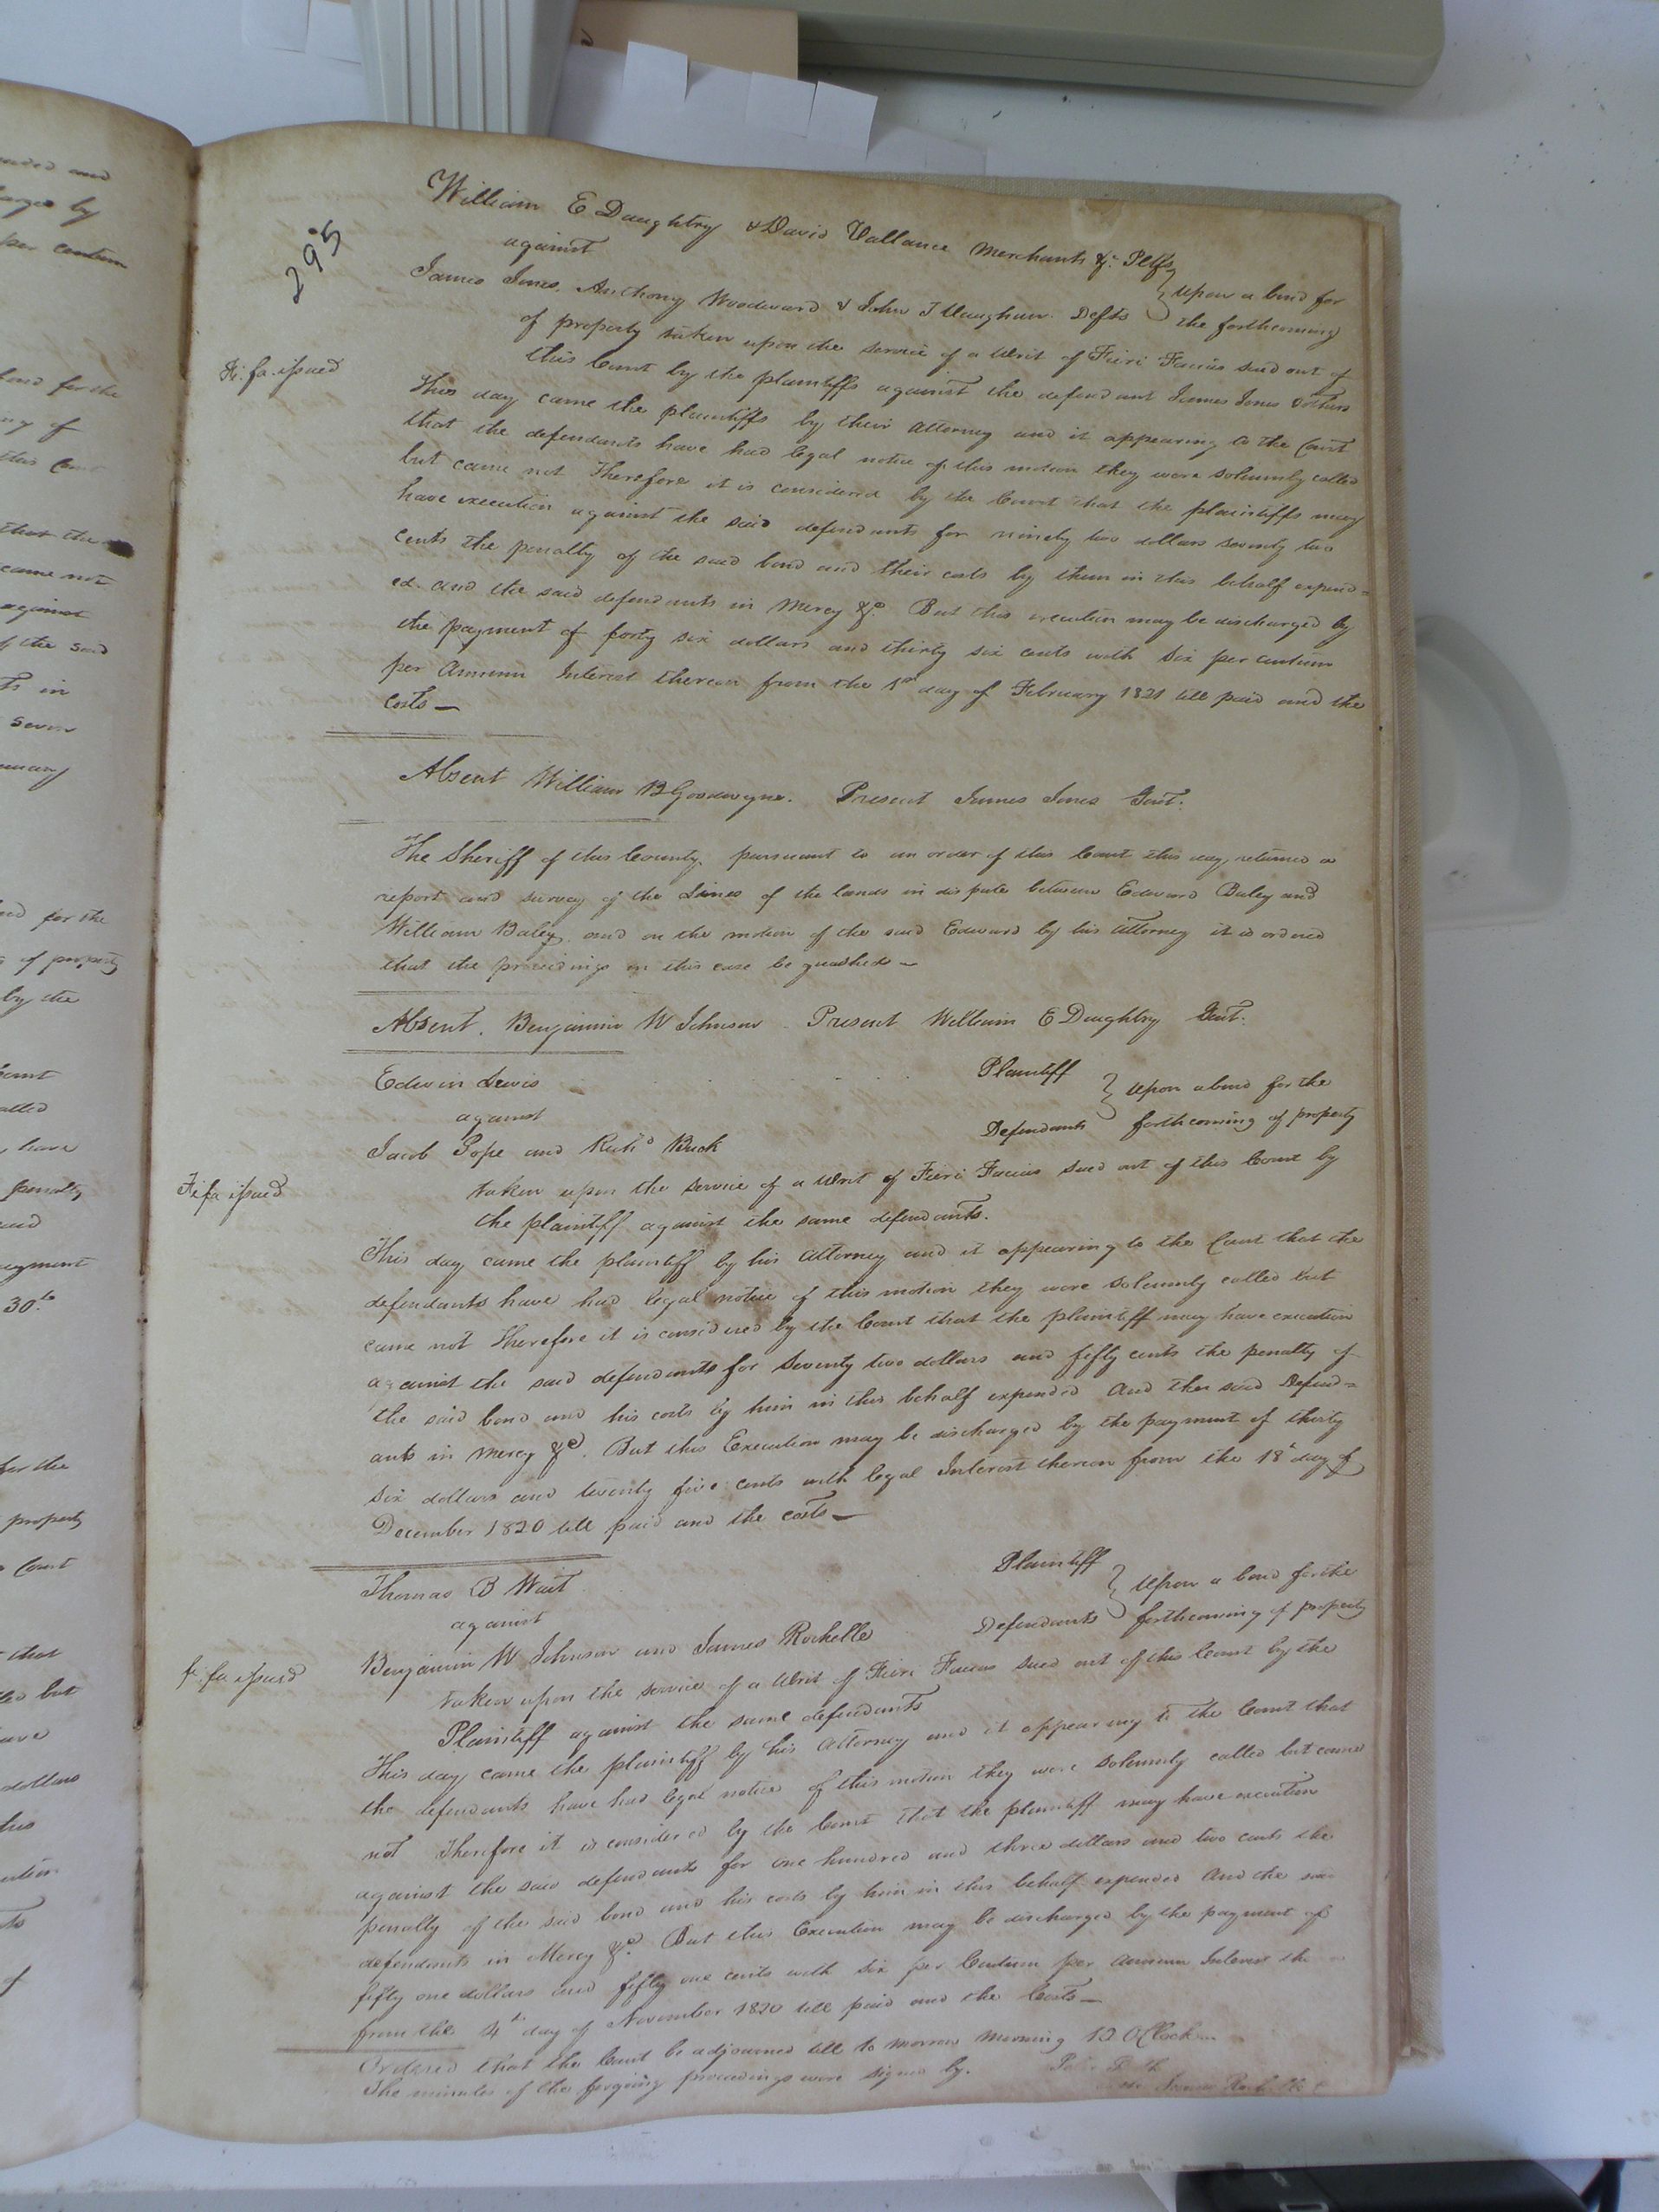 295
William E Daughtry & David Vallance Merchants &c. Pltfs
against
upon a bond for
James Jones, Anthony Woodward & John T Vaughan Defts
the forthcoming
of property taken upon the service of a Writ of Fieri Facias sued out of
this Court by the plaintiffs against the defendant James Jones & others
Fi. fa. issued
This day came the plaintiffs by their Attorney and it appearing to the Court
that the defendants have had legal notice of this motion they were solemnly called
but came not Therefore it is considered by the Court that the plaintiffs may
have execution against the said defendants for ninety two dollars seventy two
cents the penalty of the said bond and their costs by them in this behalf expend=
ed. and the said defendants in Mercy &c. But this execution may be discharged by
the payment of forty six dollars and thirty six cents with six per centum
per Annum Interest thereon from the 1st day of February 1821 till paid and the
costs—
Absent William B Goodwyn. Present James Jones Gent.
The Sheriff of this County, pursuant to an order of this Court this day, returned a
report and survey of the Lines of the lands in dispute between Edward Baley and
William Baley, and on the motion of the said Edward by his Attorney it is ordered
that the proceedings in this case be quashed—
Absent. Benjamin W Johnson. Present William E Daughtry Gent.
Edwin Lewis Plaintiff
against
upon a bond for the
Jacob Pope and Richd Buck Defendants
forthcoming of property
Fi fa issued
taken upon the service of a Writ of Fieri Facias sued out of this Court by
the plaintiff against the same defendants.
This day came the plaintiff by his Attorney and it appearing to the Court that the
defendants have had legal notice of this motion they were solemnly called but
came not Therefore it is considered by the Court that the plaintiff may have execution
against the said defendants for Seventy two dollars and fifty cents the penalty of
the said bond and his costs by him in this behalf expended And the said Defend=
ants in Mercy &c. But this Execution may be discharged by the payment of thirty
six dollars and twenty five cents with legal Interest thereon from the 18th day of
December 1820 till paid and the costs—
Thomas B Wait Plaintiff
against
Upon a bond for the
Benjamin W Johnson and James Rochelle Defendants
forthcoming of property
fi. fa issued
taken upon the service of a Writ of Fieri Facias sued out of this Court by the
Plaintiff against the same defendants
This day came the plaintiff by his Attorney and it appearing to the Court that
the defendants have had legal notice of this motion they were solemnly called but came
not Therefore it is considered by the Court that the plaintiff may have execution
against the said defendants for one hundred and three dollars and two cents the
penalty of the said bond and his costs by him in this behalf expended And the said
defendants in Mercy &c. But this Execution may be discharged by the payment of
fifty one dollars and fifty one cents with six per Centum per annum Interest
from the 4th day of November 1820 till paid and the Costs—
Ordered that the Court be adjourned till to morrow Morning 10 OClock
The minutes of the forgoing proceedings were signed by.